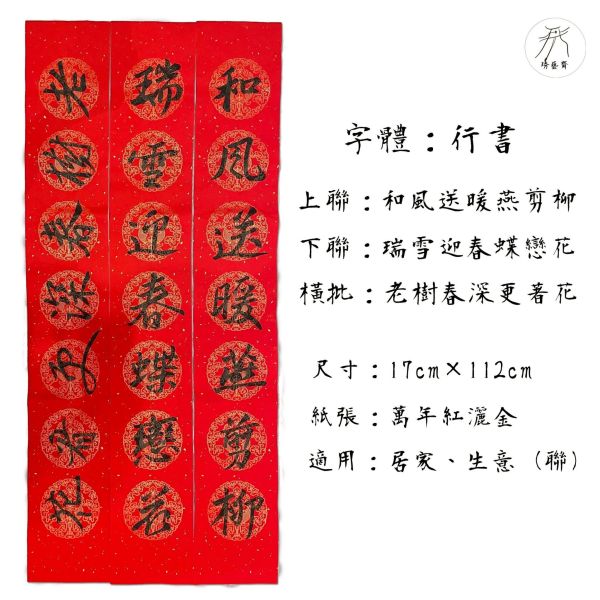 和風送暖燕剪柳
瑞雪迎春蝶戀花
老樹春深更著花
琦藝齋
字體：行書
上聯：和風送暖燕剪柳
下聯：瑞雪迎春蝶戀花
橫批：老樹春深更著花
尺寸：17cm×112cm
紙張：萬年紅灑金
適用：居家、生意（聯）